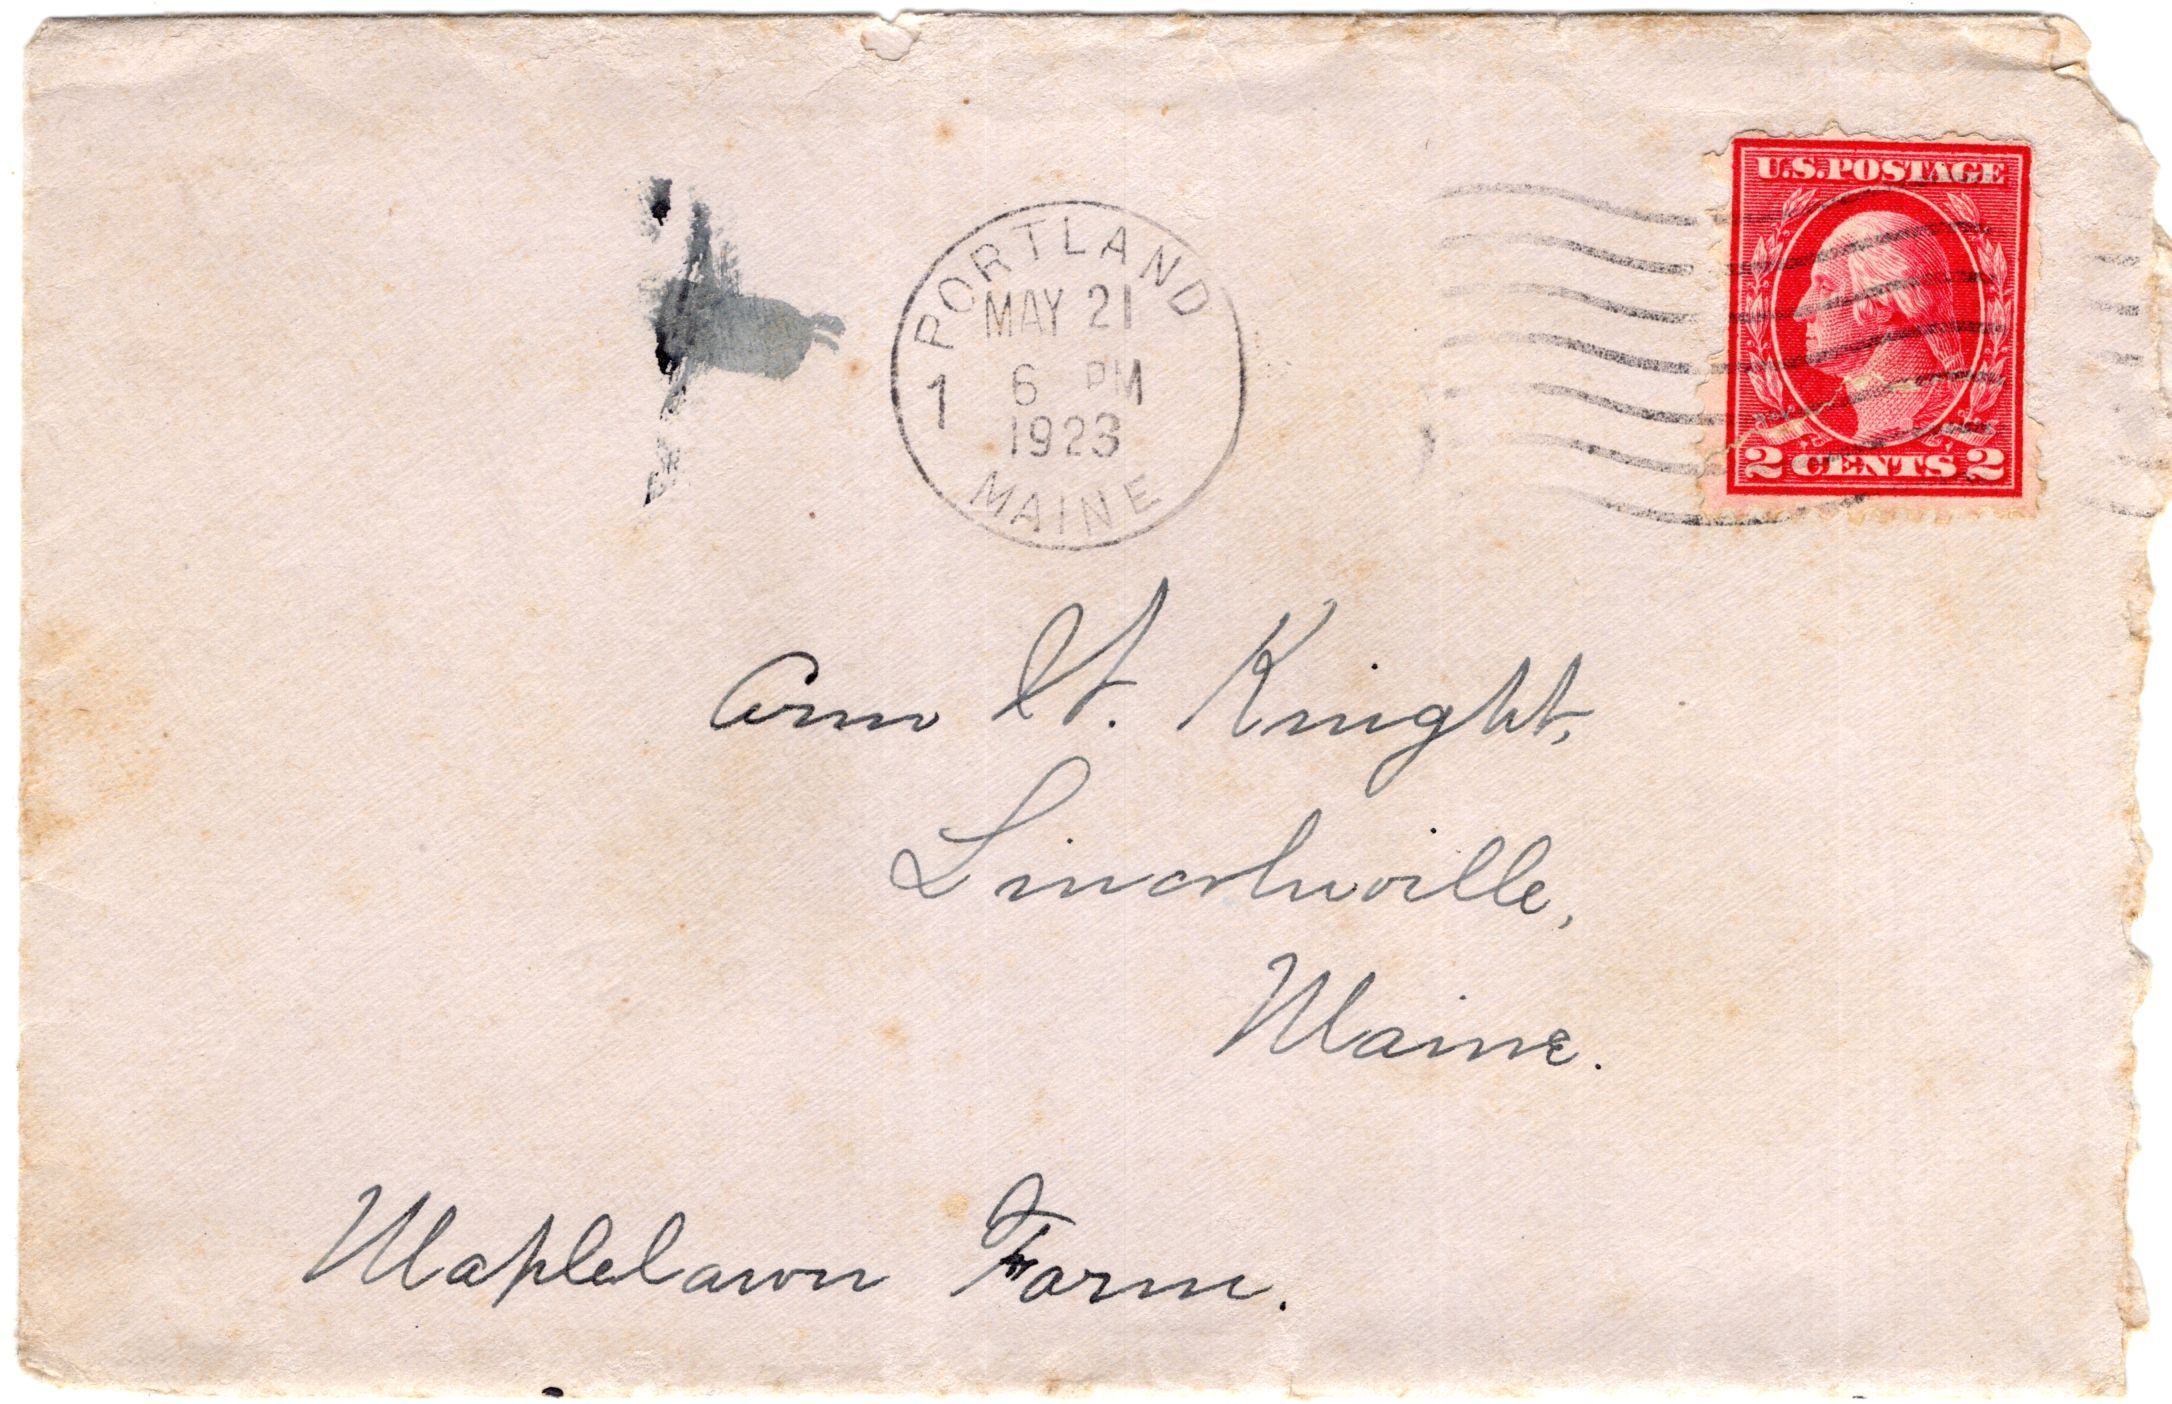 PORTLAND
MAY 21
1 6 PM
1923
MAINE
U.S. POSTAGE
2 CENTS 2
Knight,
Lincolnville,
Maine.
Maplelawn Farm.